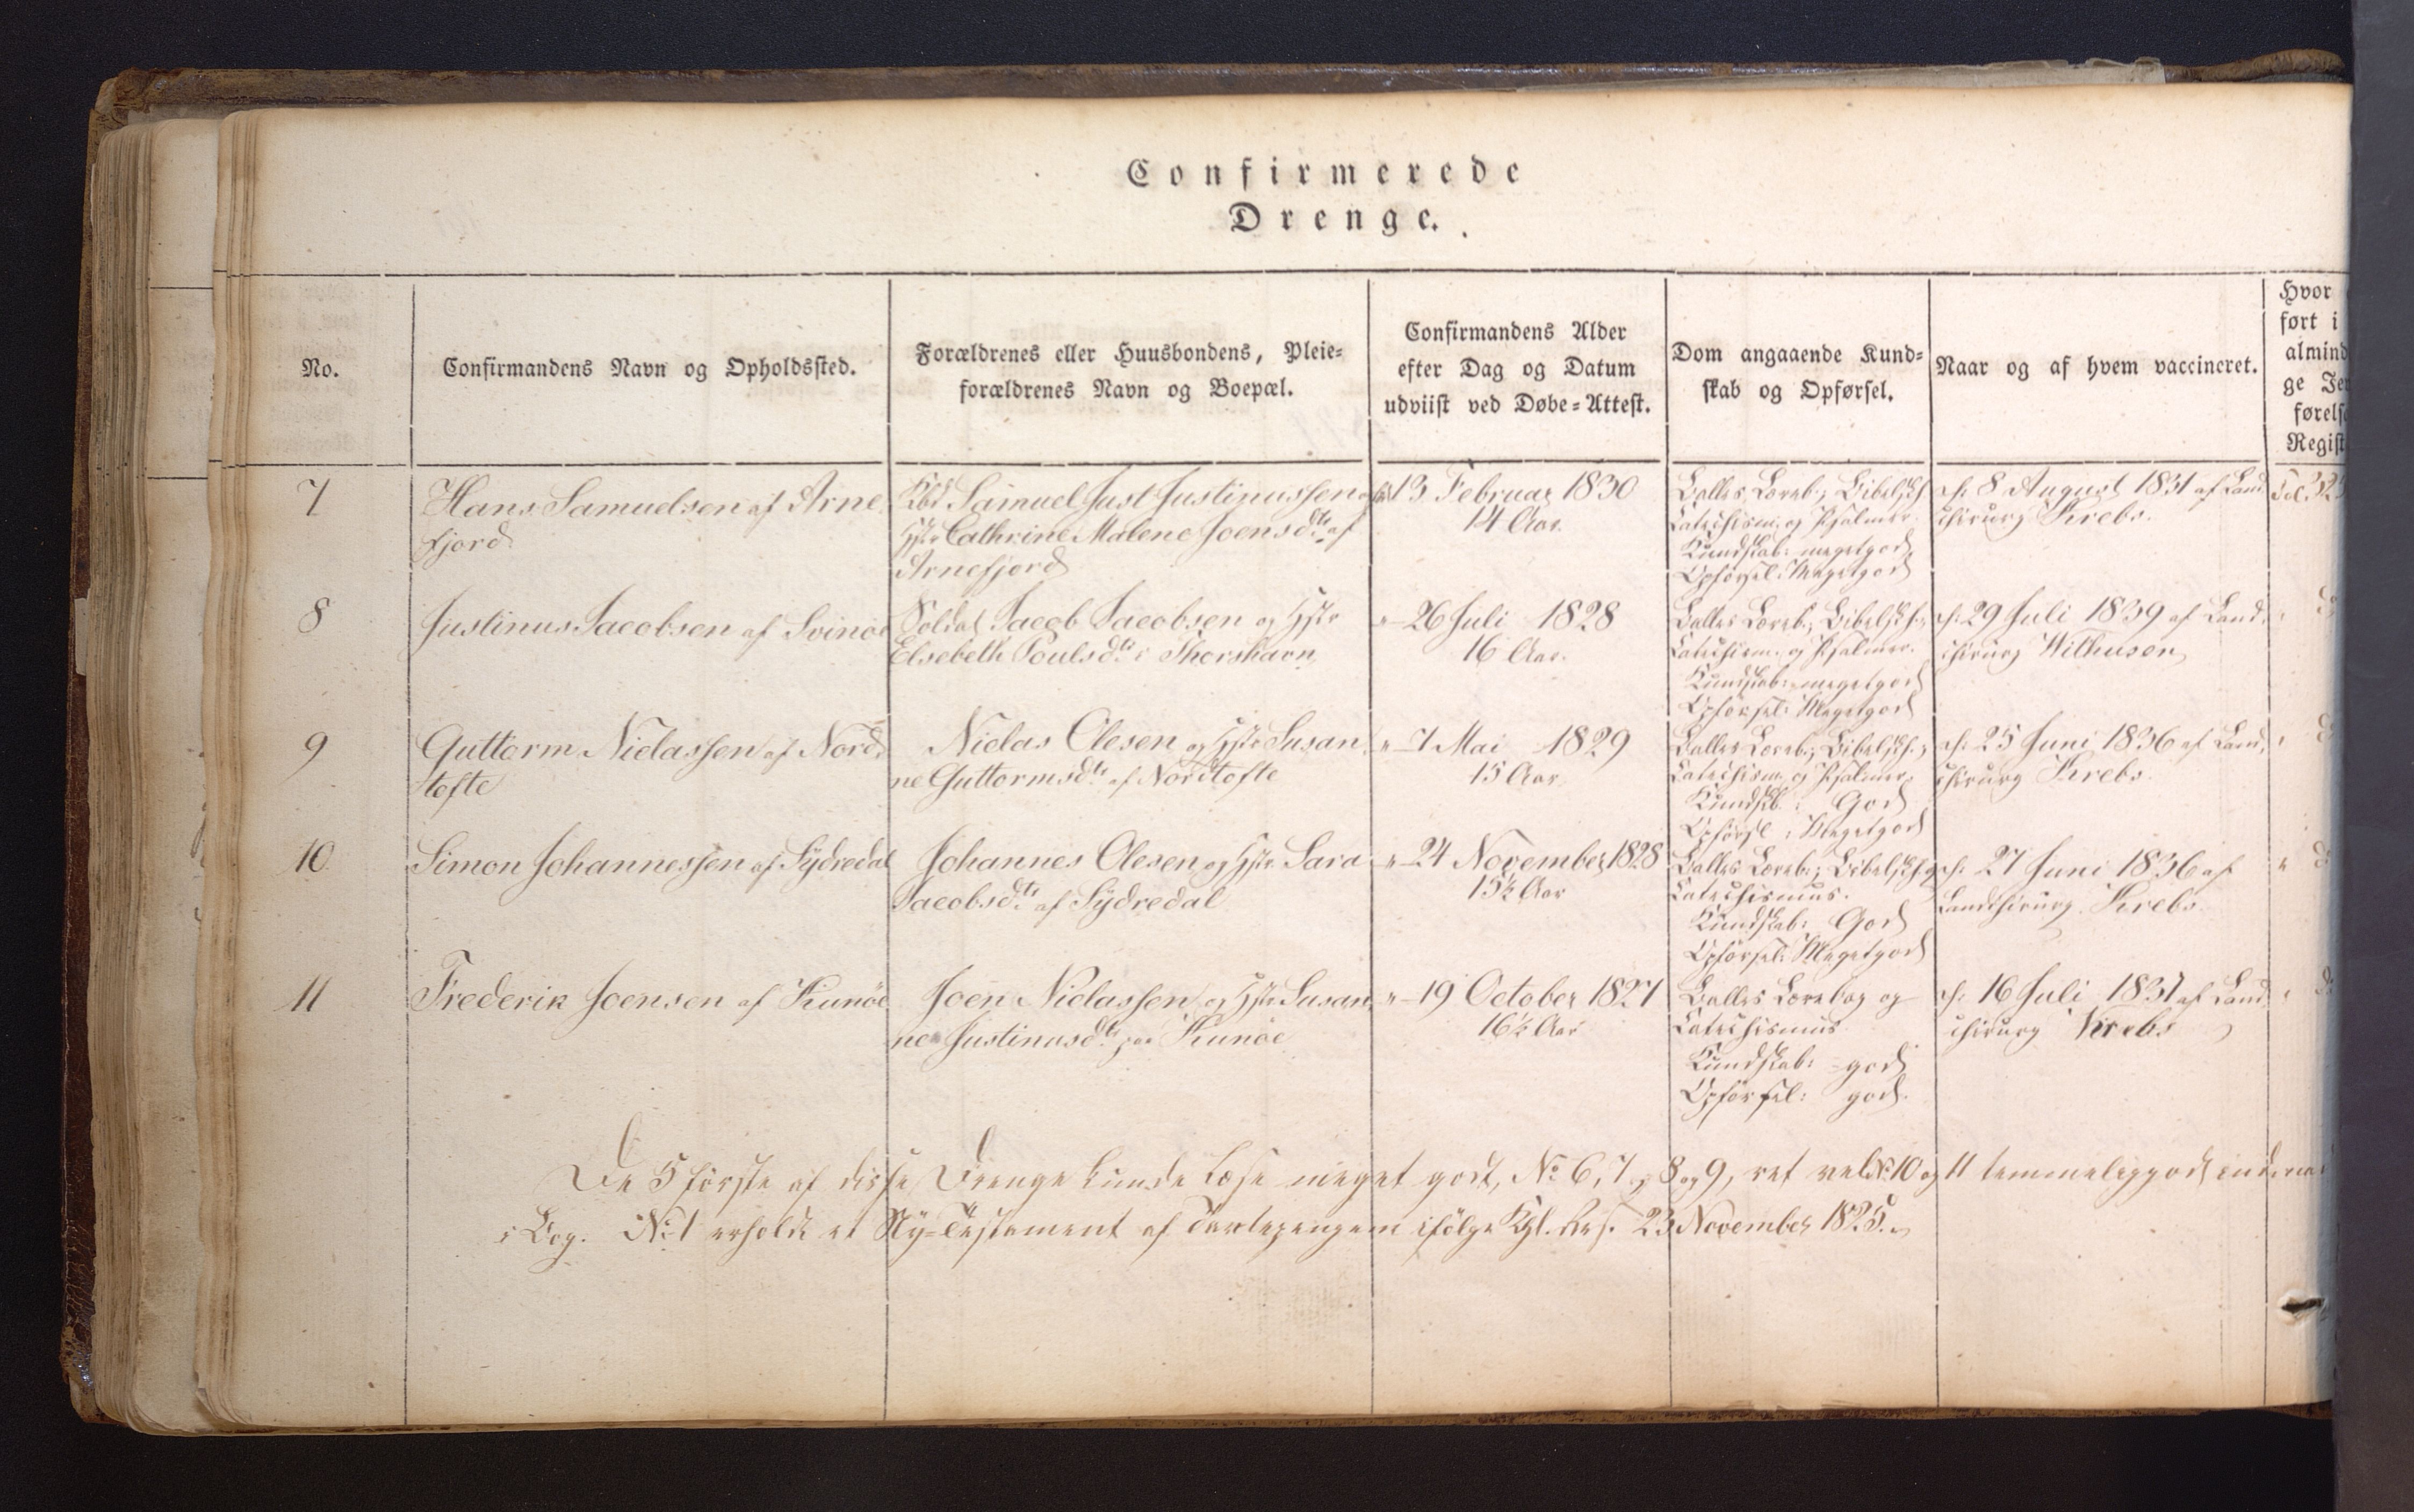 Confirmerede
Drenge.
No.
Confirmandens Navn og Opholdssted.
Forældrenes eller Huusbondens, Pleie-
forældrenes Navn og Boepæl.
Confirmandens Alder
efter Dag og Datum
udviist ved Døbe-Attest.
Dom angaaende Kund-
skab og Opførsel.
Naar og af hvem vaccineret.
Hvor
ført i
almind
ge Je
førels
Regist
7
Hans Samuelsen af Arne
fjord
Kbd. Samuel Just Justinussen og
Hstr Cathrine Malene Joensdtr af
Arnefjord
13 Februar 1830
14 Aar.
Balles Læreb., Bibelsh.
Catechism. og Psalmer
Kundskab: megetgod
Opførsel: Megetgod
8 August 1831 af Land
chirurg Krebs.
8
Justinus Jacobsen af Svinöe
Soldat Jacob Jacobsen og Hstr
Elsebeth Poulsdtr i Thorshavn
" 26 Juli 1828
16 Aar.
Balles Læreb., Bibelsh.,
Catechism. og Psalmer.
Kundskab: megetgod
Opførsel: Megetgod
29 Juli 1839 af Land
chirurg Wilhusen
9
Guttorm Niclassen af Nord
tofte
Niclas Olesen og Hstr Susan
ne Guttormsdtr af Nordtofte
" 7 Mai 1829
15 Aar.
Balles Læreb., Bibelsh.,
Catechism. og Psalmer.
Kundsk.: God
Opførsl: Megetgod
25 Juni 1836 af Land
chirurg Krebs.
10
Simon Johannessen af Sydredal
Johannes Olesen og Hstr Sara
Jacobsdtr af Sydredal
" 24 November 1828
15½ Aar
Balles Læreb., Bibelsh. og
Catechismus.
Kundskab: God
Opførsel: Megetgod
27 Juni 1836 af
Landchirurg Krebs.
11
Frederik Joensen af Kunöe
Joen Niclassen og Hstr Susan
ne Justinusdtr paa Kunöe
" 19 October 1827
16½ Aar
Balles Lærebog og
Catechismus
Kundskab: god
Opførsel: god.
16 Juli 1831 af Land
chirurg Krebs
De 5 förste af disse Drenge kunde læse meget godt, No 6, 7, 8 og 9, ret vel, No 10 og 11 temmelig godt
i Bog. No 1 erholdt et Ny-Testament af ifölge Kgl. Res. 23 November 1825.